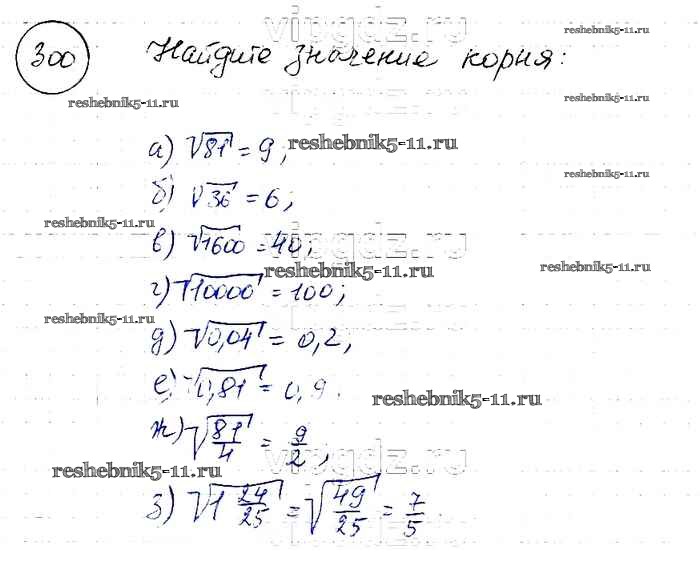 vipgdz.ru
300 Найдите значение корня:
reshebnik5-11.ru
reshebnik5-11.ru
vipgdz.ru
reshebnik5-11.ru
а) √81 = 9; reshebnik5-11.ru
reshebnik5-11.ru
б) √36 = 6;
reshebnik5-11.ru vipgdz.ru
в) √1600 = 40;
reshebnik5-11.ru reshebnik5-11.ru
г) √10000 = 100;
reshebnik5-11.ru vipgdz.ru
д) √0,04 = 0,2,
е) √0,81 = 0,9.
reshebnik5-11.ru
ж) √81/4 = 9/2,
vipgdz.ru
reshebnik5-11.ru
з) √1 24/25 = √49/25 = 7/5